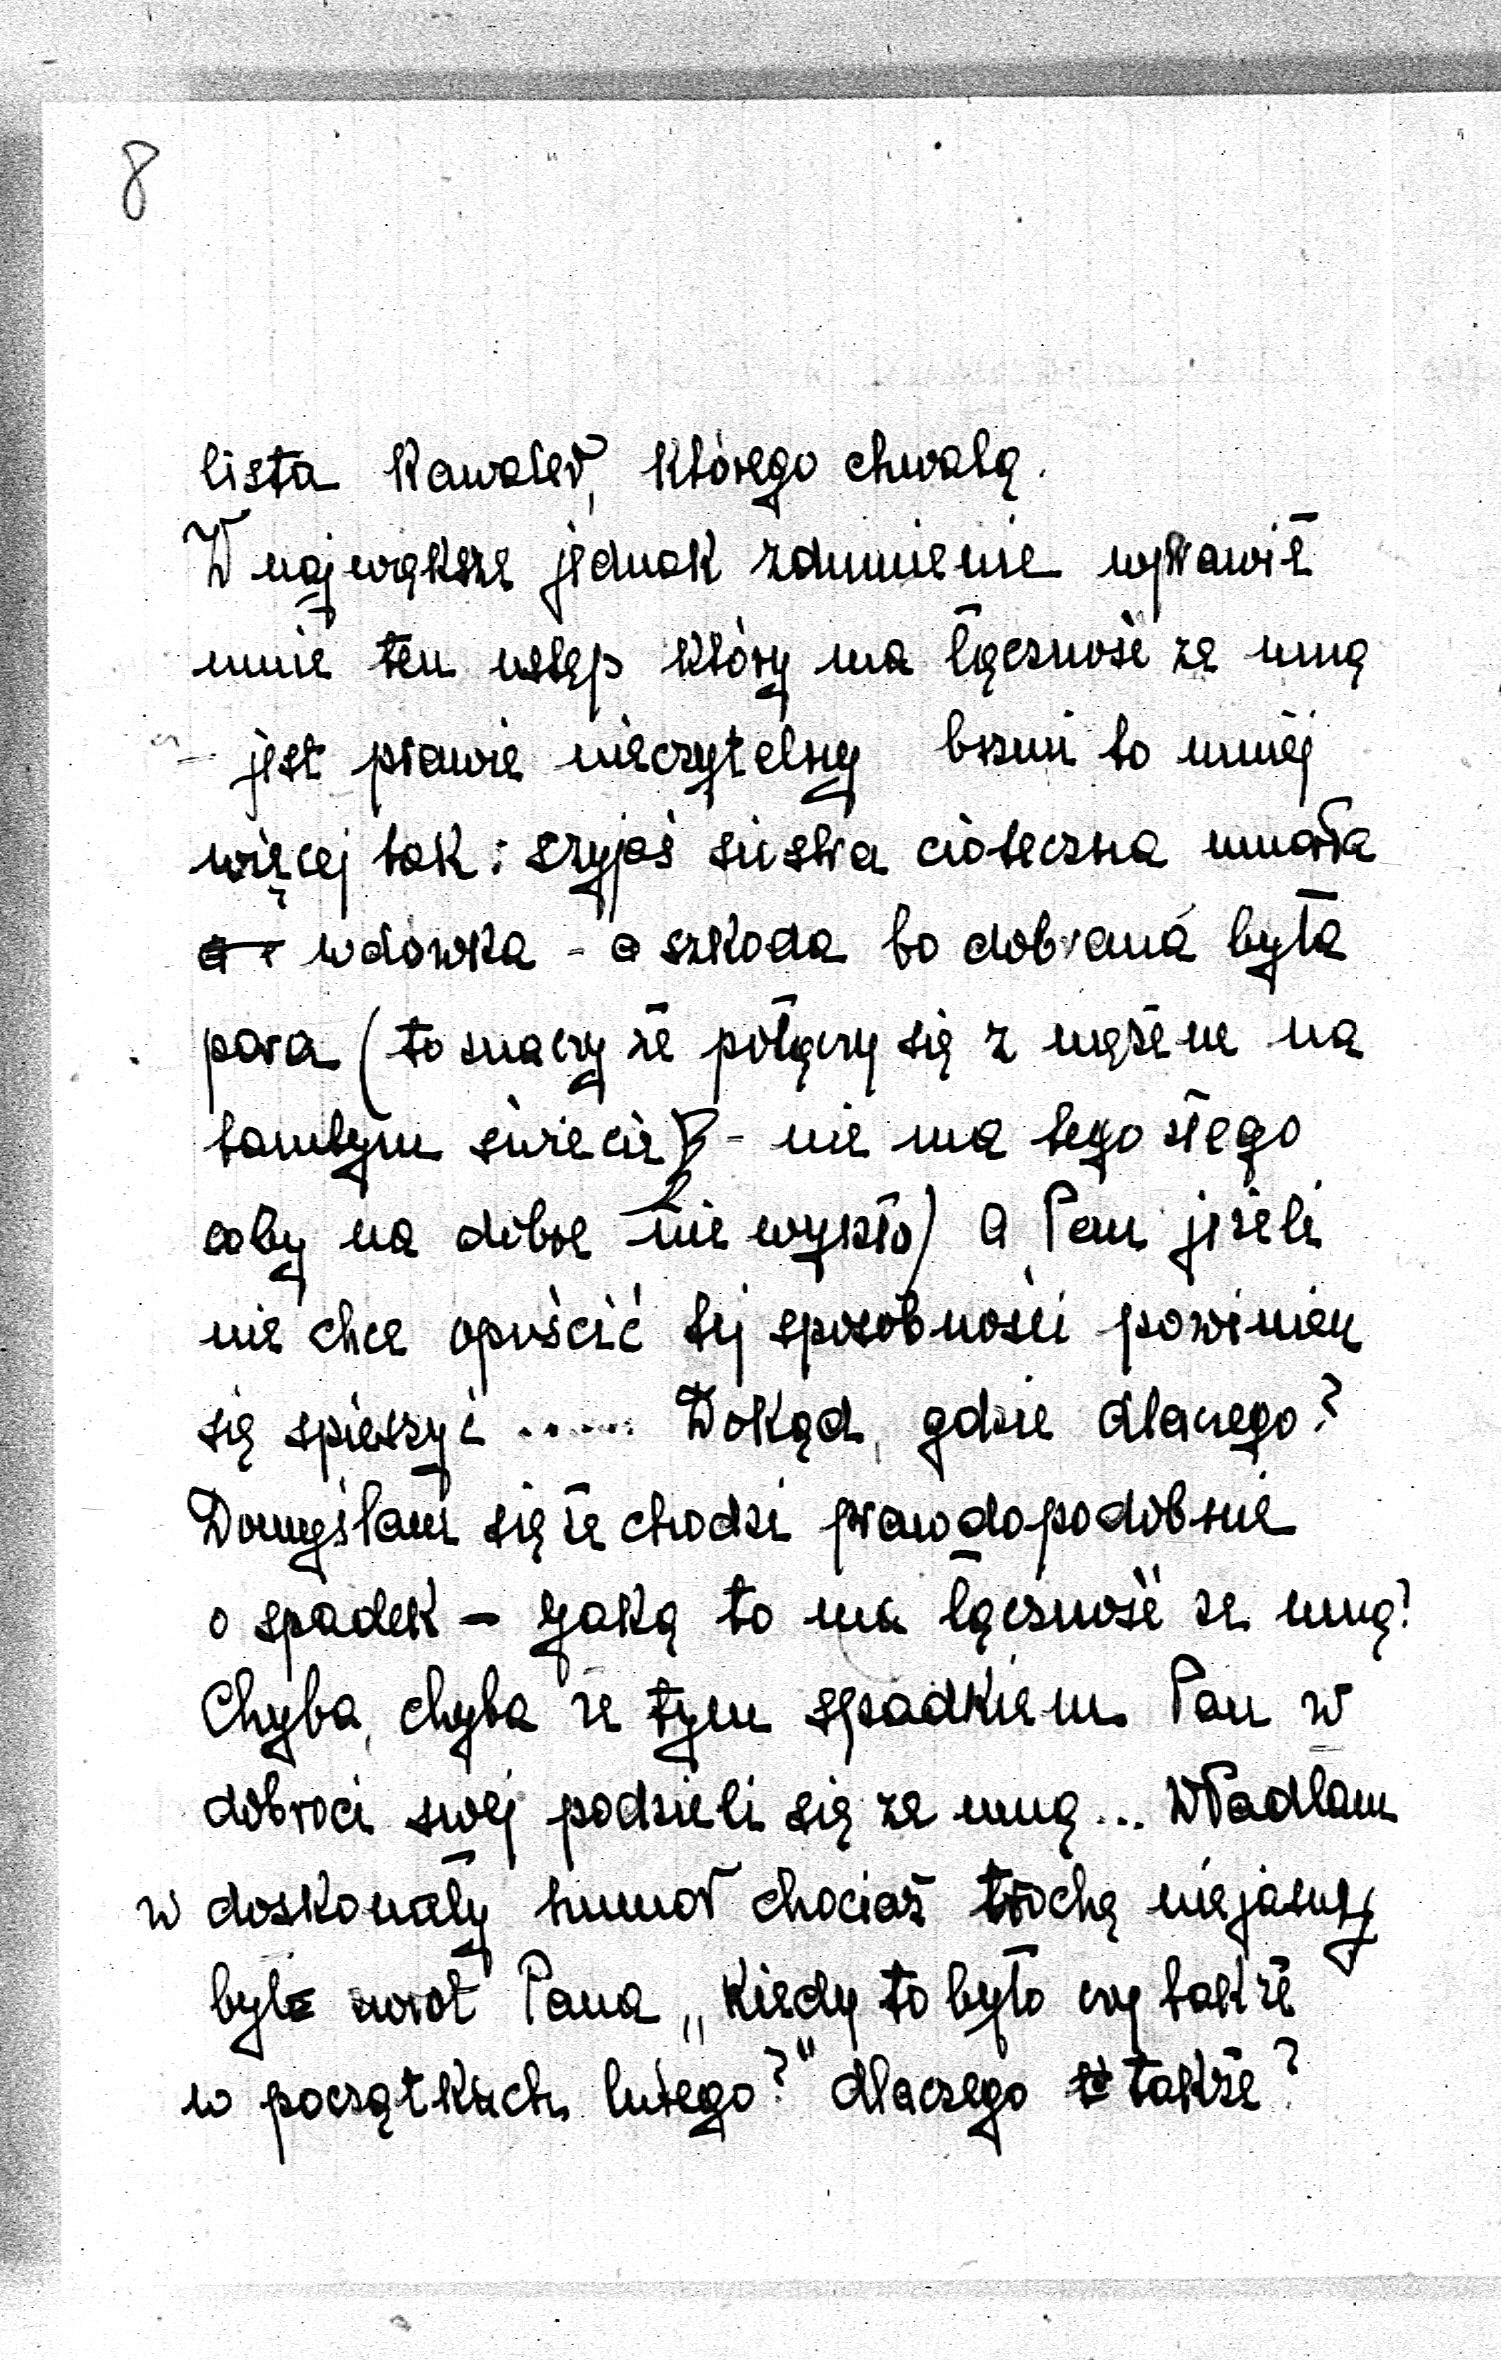 8
lista kawaler, którego chwalą.
W największe jednak zdumienie wprawił
mnie ten ustęp który ma łączność ze mną
– jest prawie nieczytelny brzmi to mniej
więcej tak: czyjaś siostra cioteczna umarła
wdówka - a szkoda bo dobrana była
para (to znaczy że połączy się z mężem na
tamtym świecie - nie ma tego złego
coby na dobre nie wyszło) a Pan jeżeli
nie chce opuścić tej sposobności powinien
się spieszyć ..... Dokąd, gdzie dlaczego?
Domyślam się że chodzi prawdopodobnie
o spadek – jaką to ma łączność ze mną?
Chyba, chyba że tym spadkiem Pan w
dobroci swej podzieli się ze mną... Wpadłam
w doskonały humor chociaż trochę niejasny
był zwrot Pana „Kiedy to było czy także
w początkach lutego?" dlaczego także?